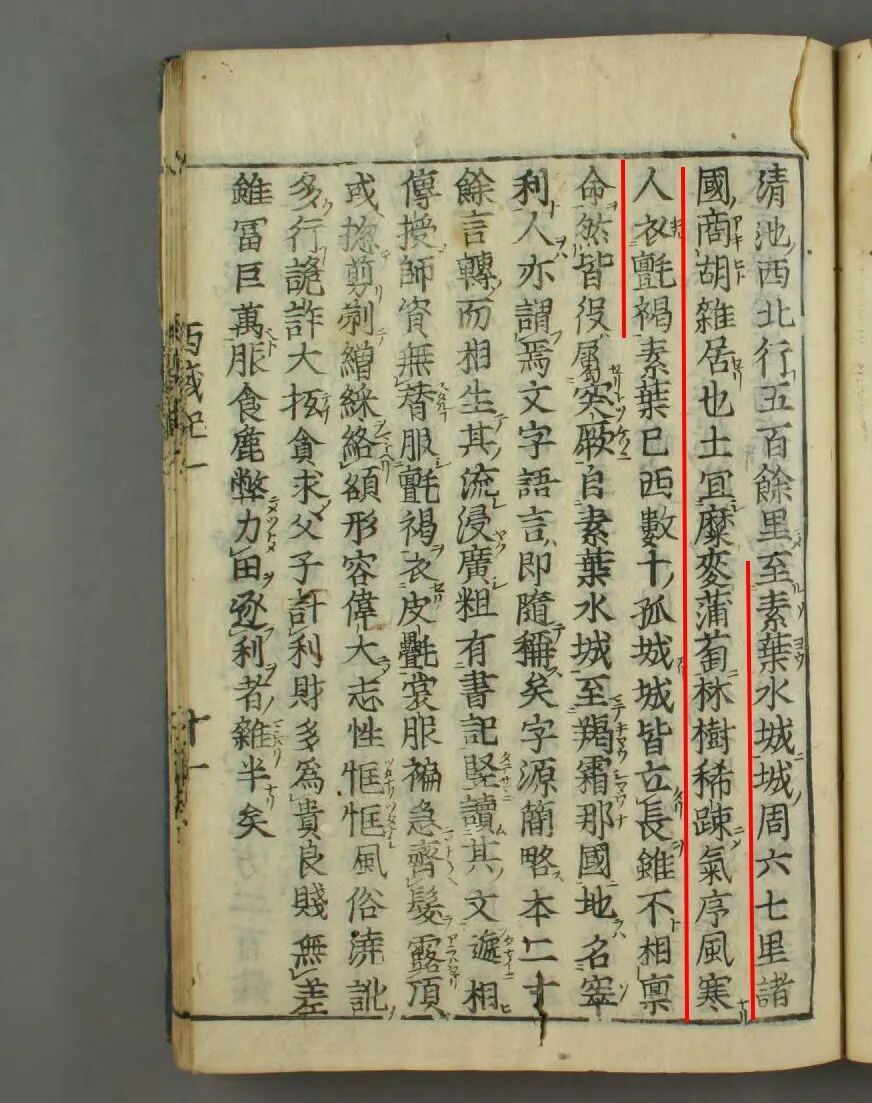 清池西北行五百餘里至素葉水城城周六七里諸
國商胡雜居也土宜糜麥蒲萄林樹稀踈氣序風寒
人衣氈褐素葉已西數十孤城城皆立長雖不相禀
命然皆役屬突厥自素葉水城至羯霜那國地名窣
利人亦謂焉文字語言即隨稱矣字源簡略本二十
餘言轉而相生其流浸廣粗有書記竪讀其文遞相
傳授師資無替服氈褐衣皮㲲裳服褊急齊髮露頂
或揔剪剃繒綵絡額形容偉大志性恇怯風俗澆訛
多行詭詐大抵貪求父子計利財多爲貴良賤無差
雖冨巨萬服食麁弊力田逐利者雜半矣
西域記一
十一